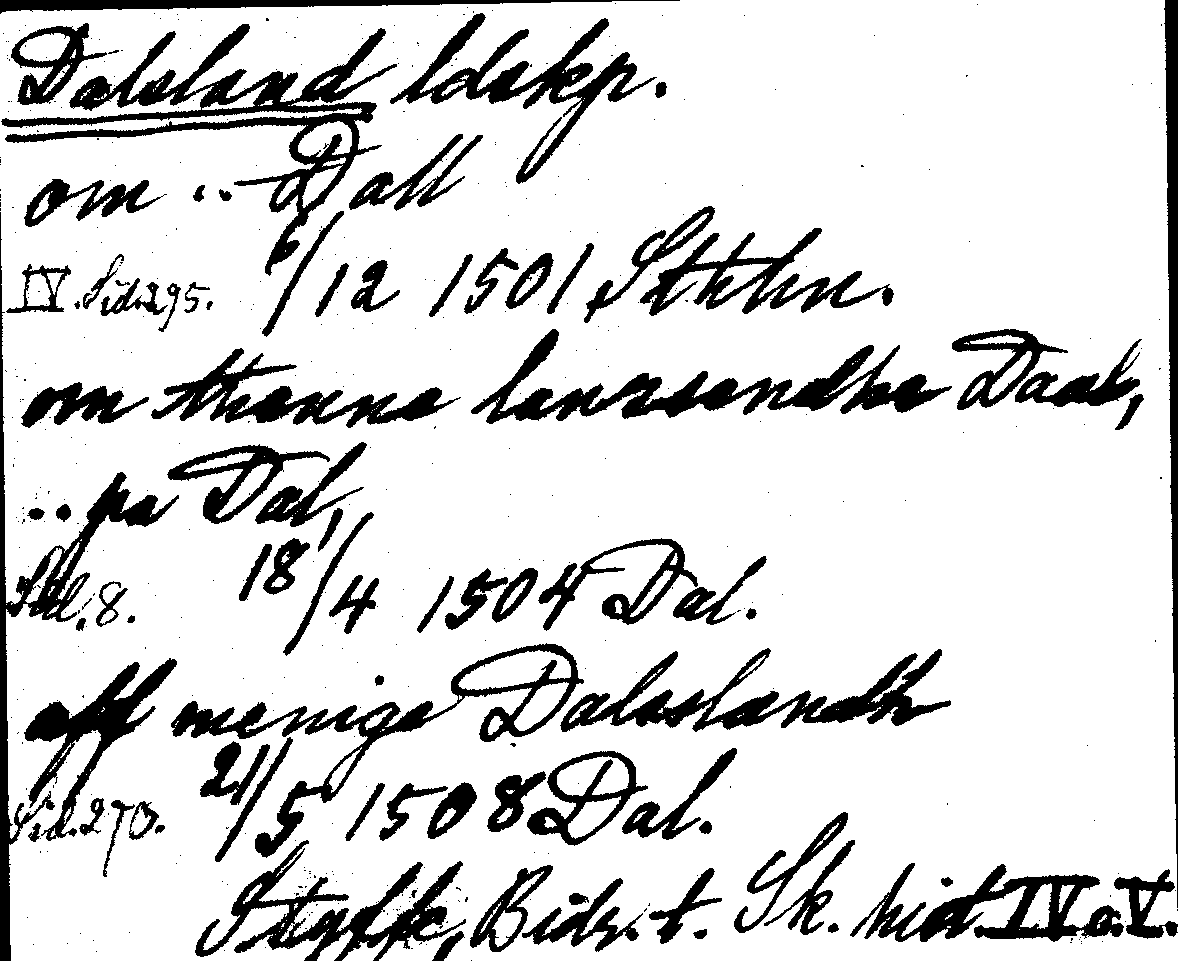 Dalsland ldskp.
om .. Dall
IV. Sid. 295. 6/12 1501 Sthlm.
om thenna landzsendha Daal,
.. pa Dal,
Sid. 8. 18/4 1504 Dal.
aff meniga Dalsslandh
Sid. 270. 21/5 1508 Dal.
Styffe, Bidr. t. Sk. hist. IV o. V.